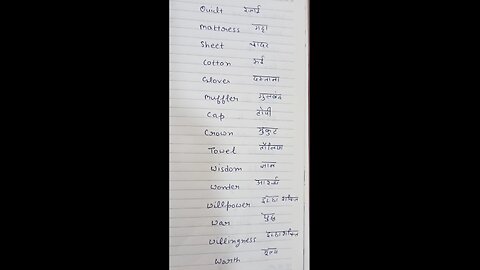 Quilt रजाई
Mattress गद्दा
Sheet चादर
Cotton रूई
Glover दस्ताना
Muffler गुलबंद
Cap टोपी
Crown मुकुट
Towel तौलिया
Wisdom ज्ञान
Wonder आश्चर्य
Willpower इच्छा शक्ति
War युद्ध
Willingness इच्छा शक्ति
Worth